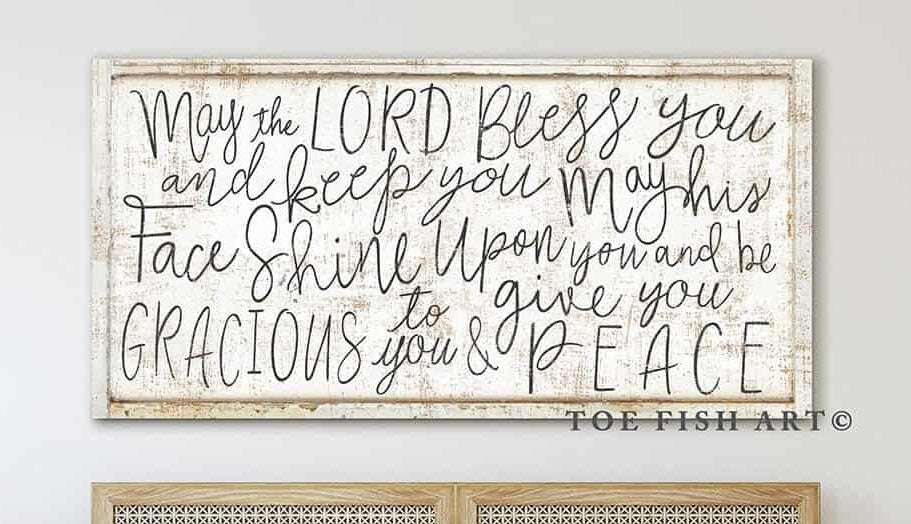 May the LORD Bless you
and keep you May his
Face Shine Upon you and be
GRACIOUS to you & give you PEACE
TOE FISH ART©